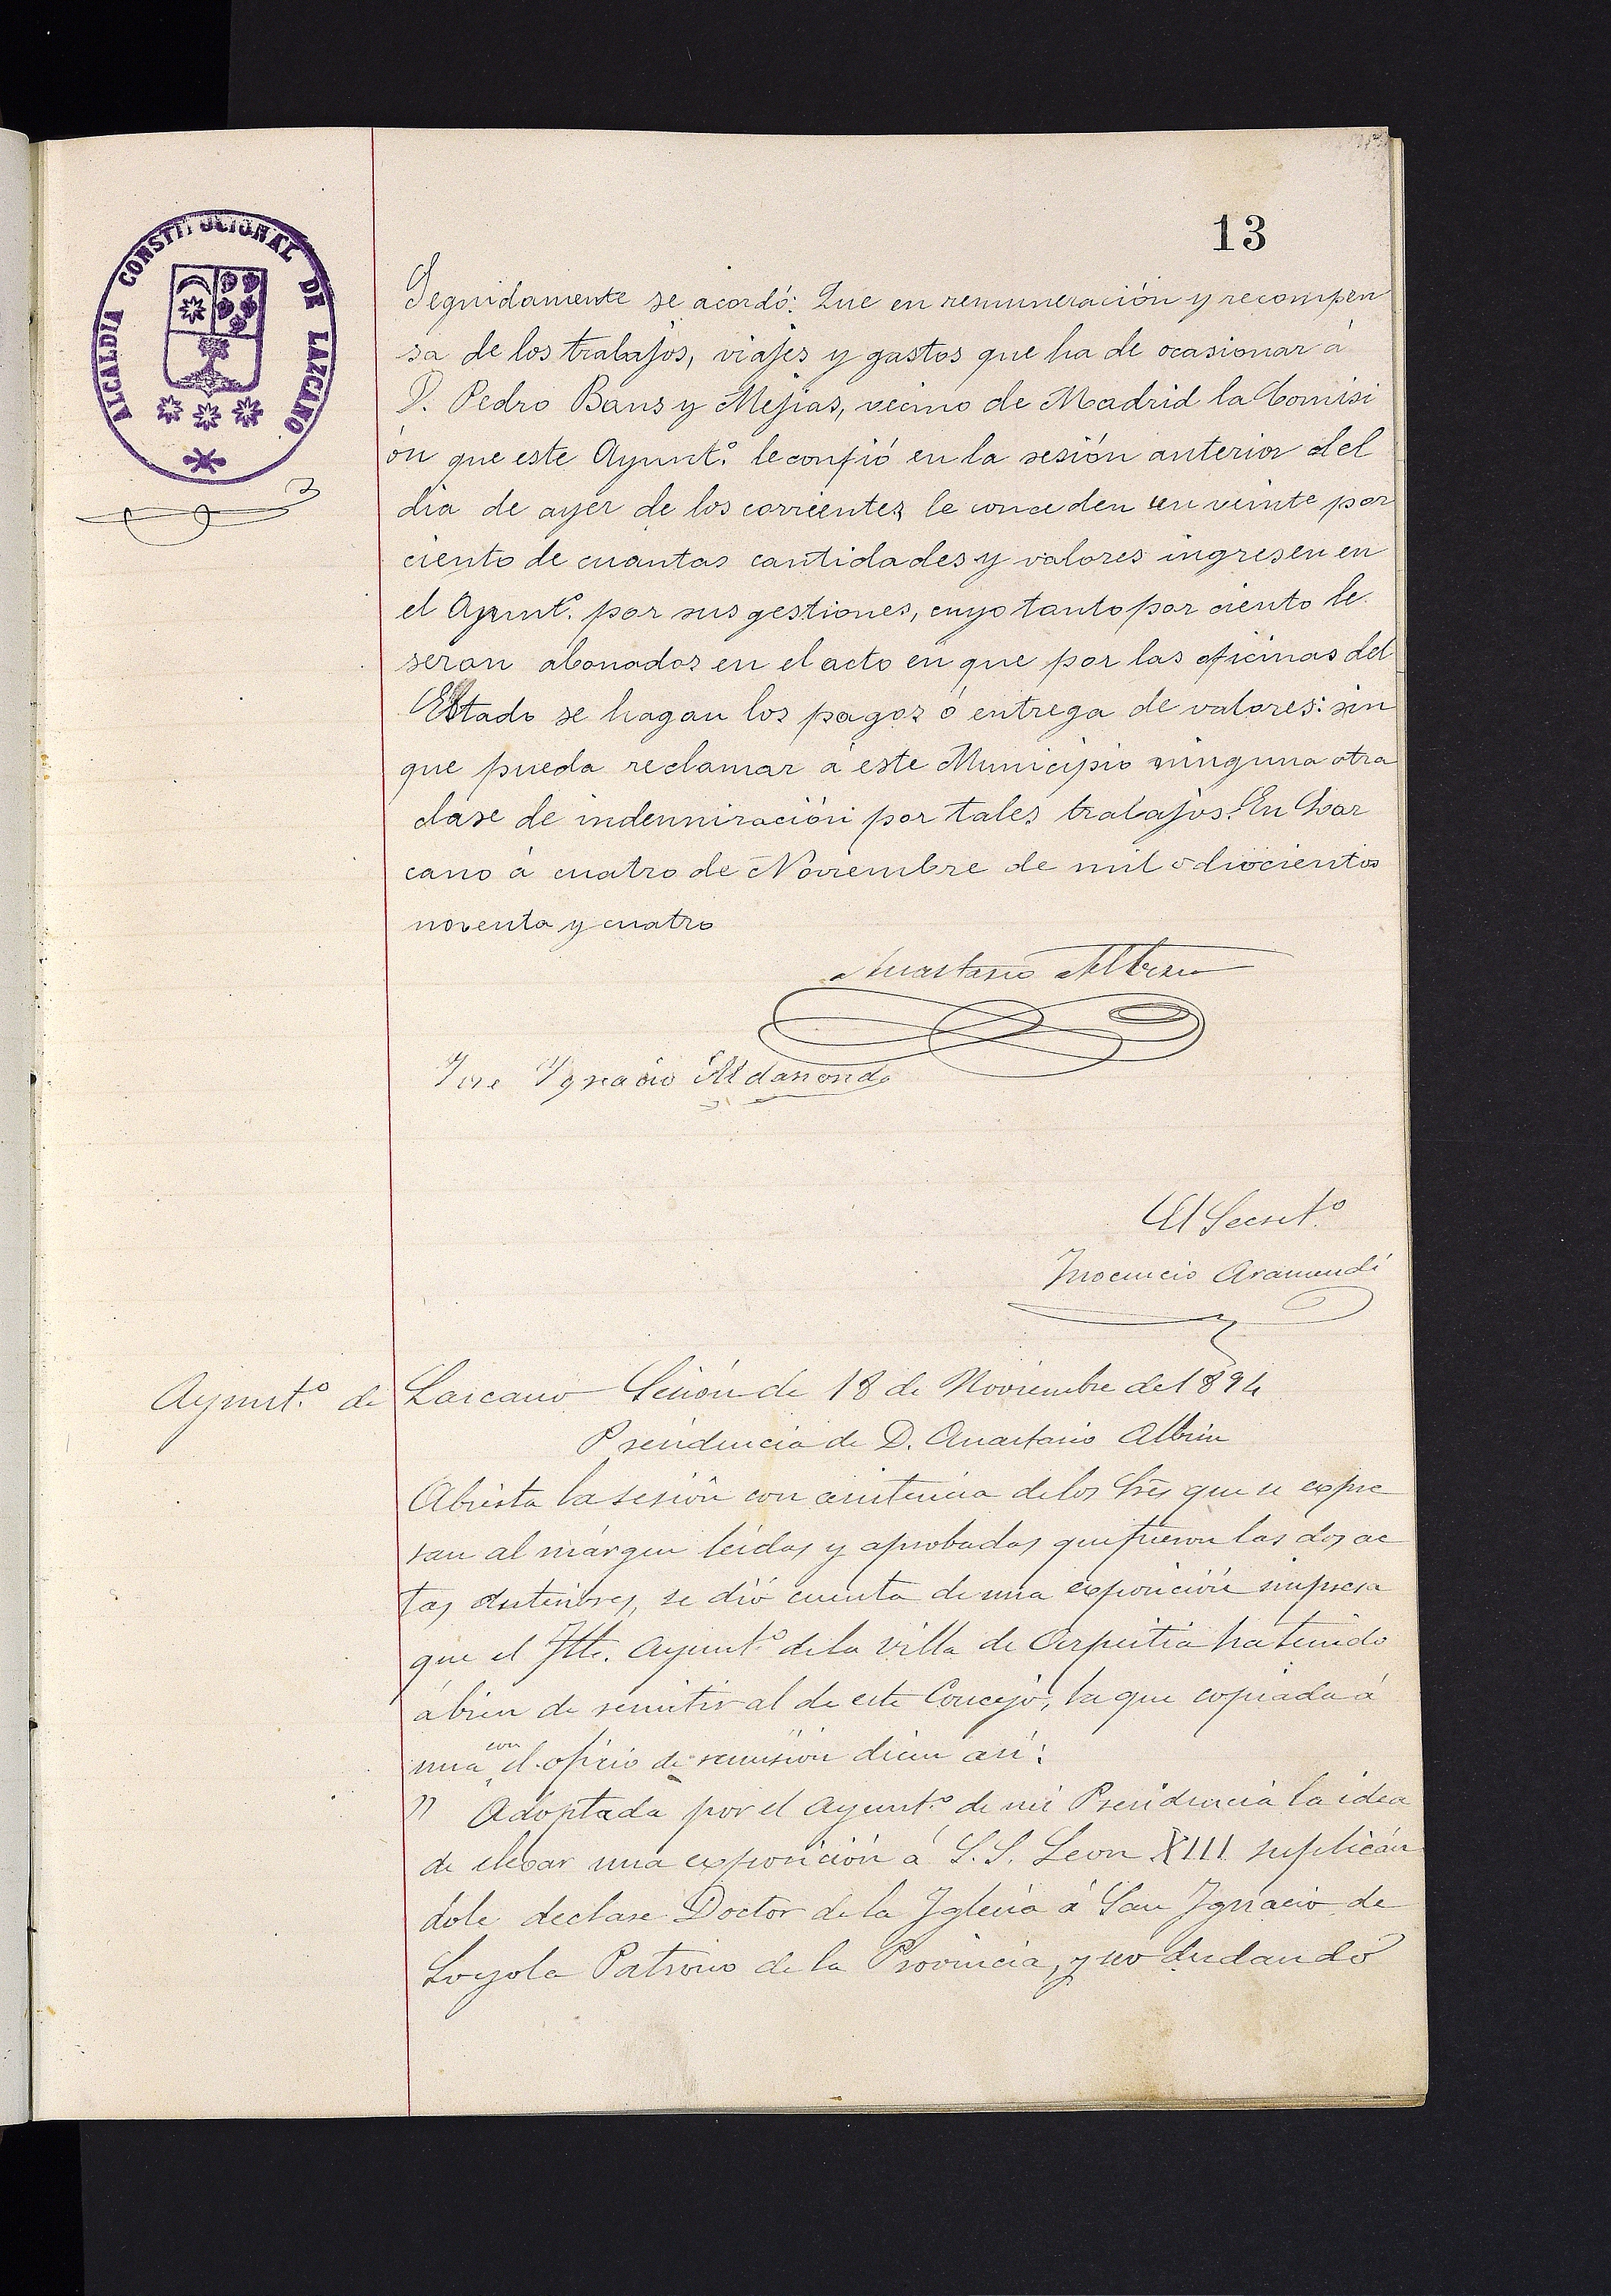 13
ALCALDIA CONSTITUCIONAL DE LAZCANO
Seguidamente se acordó: Que en remuneración y recompen
sa de los trabajos, viajes y gastos que ha de ocasionar á
D. Pedro Bans y Mejias, vecino de Madrid la Comisi
ón que este Ayunt.º le confió en la sesión anterior del
dia de ayer de los corrientes, le conceden un veinte por
ciento de cuantas cantidades y valores ingresen en
el Ayunt.º por sus gestiones, cuyo tanto por ciento le
seran abonados en el acto en que por las oficinas del
Estado se hagan los pagos ó entrega de valores: sin
que pueda reclamar á este Municipio ninguna otra
clase de indemnización por tales trabajos. En Laz
cano á cuatro de Noviembre de mil ochocientos
noventa y cuatro
Anastasio Albisu
Jose Ygnacio Aldasoro
El Secret.º
Inocencio Aramendi
Ayunt.º de Lazcano Sesión de 18 de Noviembre de 1894
Presidencia de D. Anastasio Albisu
Abierta la sesión con asistencia de los Sres que se expre
san al márgen leidas y aprobadas que fueron las dos ac
tas anteriores, se dió cuenta de una exposición impresa
que el Ilte. Ayunt.º de la villa de Azpeitia ha tenido
á bien de remitir al de este Concejo, la que copiada á
una con el oficio de remisión dicen asi:
" Adoptada por el Ayunt.º de mi Presidencia la idea
de elevar una exposición á S.S. Leon XIII suplicán
dole declare Doctor de la Iglesia á San Ignacio de
Loyola Patrono de la Provincia, y no dudando